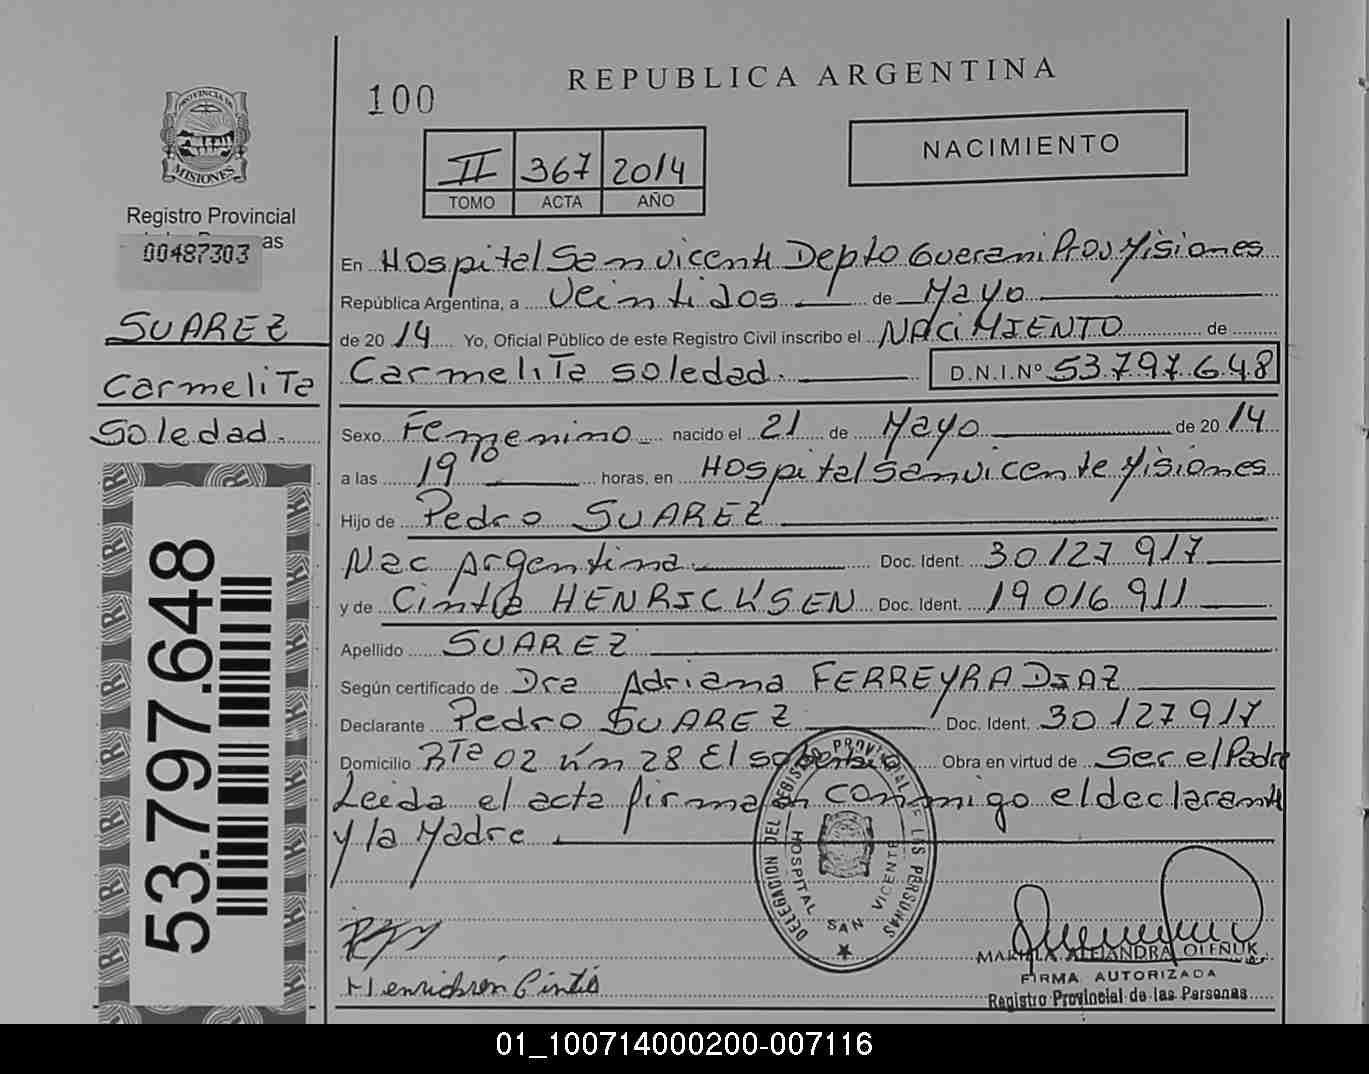 REPUBLICA ARGENTINA
100
NACIMIENTO
II 367 2014
TOMO ACTA AÑO
PROVINCIA DE
MISIONES
Registro Provincial
as
00487303
SUAREZ
Carmelita
Soledad.
53.797.648
En Hospital San vicente Depto Guarani Prov Misiones
República Argentina, a Veintidos de Mayo
de 2014 Yo, Oficial Público de este Registro Civil inscribo el NACIMIENTO de
Carmelita Soledad. D.N.I.Nº 53.797.648
Sexo Femenino nacido el 21 de Mayo de 2014
a las 19 10 horas, en Hospital San vicente Misiones
Hijo de Pedro SUAREZ
Nac Argentina Doc. Ident. 30 127 917
y de Cintia HENRICKSEN Doc. Ident. 19 016 911
Apellido SUAREZ
Según certificado de Dra Adriana FERREYRA DIAZ
Declarante Pedro SUAREZ Doc. Ident. 30 127 917
Domicilio Rta 02 km 28 El soberbio Obra en virtud de Ser el Padre
Leida el acta firman conmigo el declarante
y la Madre
DELEGACION DEL REGISTRO PROVINCIAL DE LAS PERSONAS
HOSPITAL SAN VICENTE
Henricksen Cintia
MARIELA ALEJANDRA OLEÑUK
FIRMA AUTORIZADA
Registro Provincial de las Personas
01_100714000200-007116